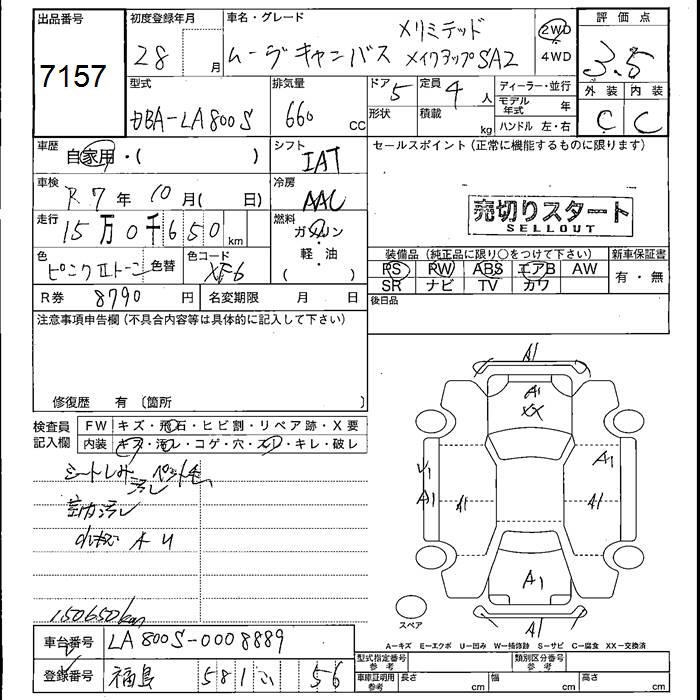 出品番号
7157
初度登録年月
28 月
車名・グレード
Xリミテッド
ムーヴキャンバス メイクアップSA2
2WD
4WD
評価点
3.5
外装 内装
C C
型式
DBA-LA800S
排気量
660 cc
ドア 5
形状
定員 4 人
積載 kg
ディーラー・並行
モデル年式 年
ハンドル 左・右
車歴
自家用・( )
シフト
IAT
セールスポイント (正常に機能するものに限ります)
車検
R7年10月( 日)
冷房
AAC
売切りスタート
SELLOUT
走行
15万0千650km
燃料
ガソリン
・
軽・油
( )
色
ピンクⅡトーン 色替
色コード
XF6
装備品 (純正品に限り○をつけて下さい)
PS PW ABS エアB AW
SR ナビ TV カワ
新車保証書
有・無
R券 8790 円
名変期限 月 日
後日品
注意事項申告欄 (不具合内容等は具体的に記入して下さい)
修復歴 有 〔箇所 〕
検査員
記入欄
FW キズ・飛石・ヒビ割・リペア跡・X要
内装 キズ・汚レ・コゲ・穴・スレ・キレ・破レ
シートしみ ペット毛
汚レ
室内汚レ
A U
150650km
A1
A1
XX
U1
A1
A1
A1
A1
A1
A1
スペア
A-キズ E-エクボ U-凹み W-補修跡 S-サビ C-腐食 XX-交換済
車台番号 LA800S-0008889
登録番号 福島 581 い 56
型式指定番号
参考
類別区分番号
参考
車庫証明用
参考
長さ cm
幅 cm
高さ cm